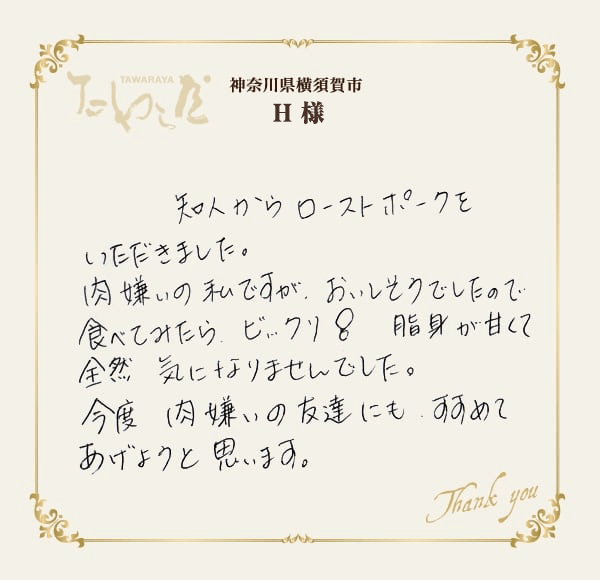 TAWARAYA
たわらや
神奈川県横須賀市
H 様
知人から ローストポークを
いただきました。
肉嫌いの私ですが、おいしそうでしたので
食べてみたら、ビックリ!! 脂身が甘くて
全然 気になりませんでした。
今度 肉嫌いの友達にも、すすめて
あげようと思います。
Thank you